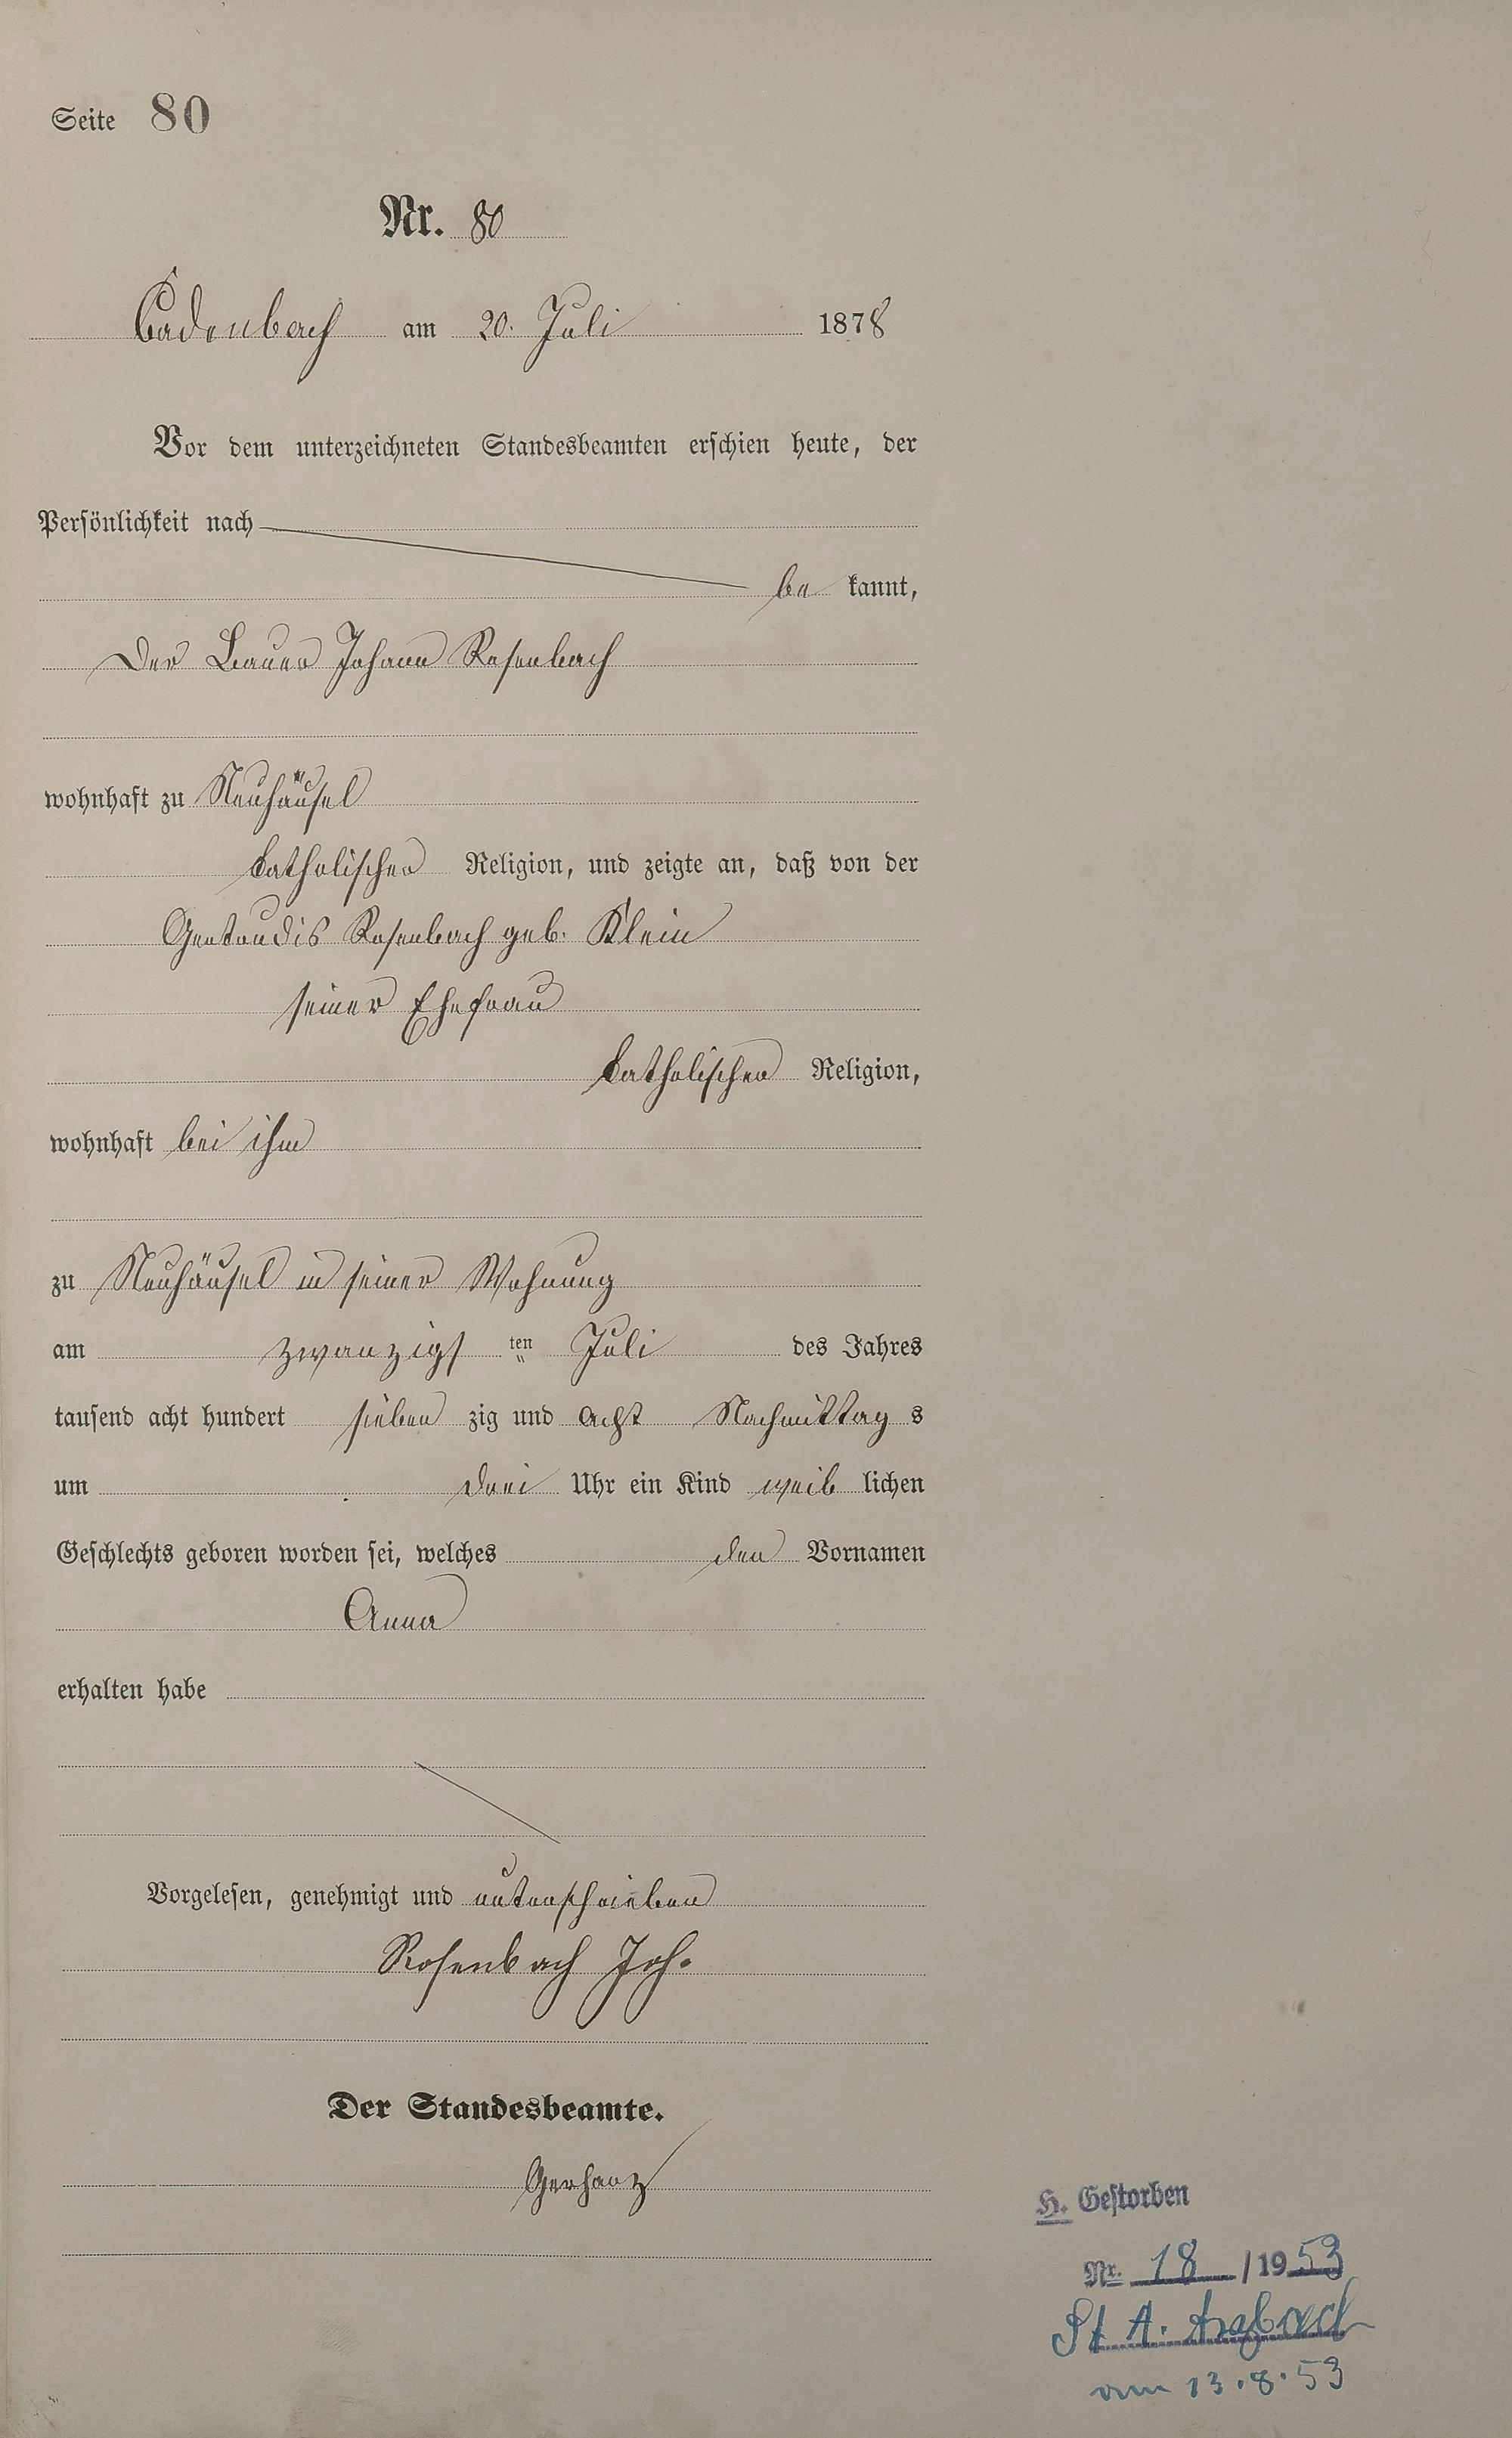 Seite 80
Nr. 80
Cadenbach am 20. Juli 1878
Vor dem unterzeichneten Standesbeamten erschien heute, der
Persönlichkeit nach
be kannt,
Der Bauer Johann Rosenbach
wohnhaft zu Neuhäusel
katholischer Religion, und zeigte an, daß von der
Gertrudis Rosenbach geb. Klein
seiner Ehefrau
katholischer Religion,
wohnhaft bei ihm
zu Neuhäusel in seiner Wohnung
am zwanzigs ten Juli des Jahres
tausend acht hundert sieben zig und acht Nachmittag s
um drei Uhr ein Kind weib lichen
Geschlechts geboren worden sei, welches den Vornamen
Anna
erhalten habe
Vorgelesen, genehmigt und unterschrieben
Rosenbach Joh.
Der Standesbeamte.
Gerharz
H. Gestorben
Nr. 18 /1953
St. A. Arzbach
am 13.8.53